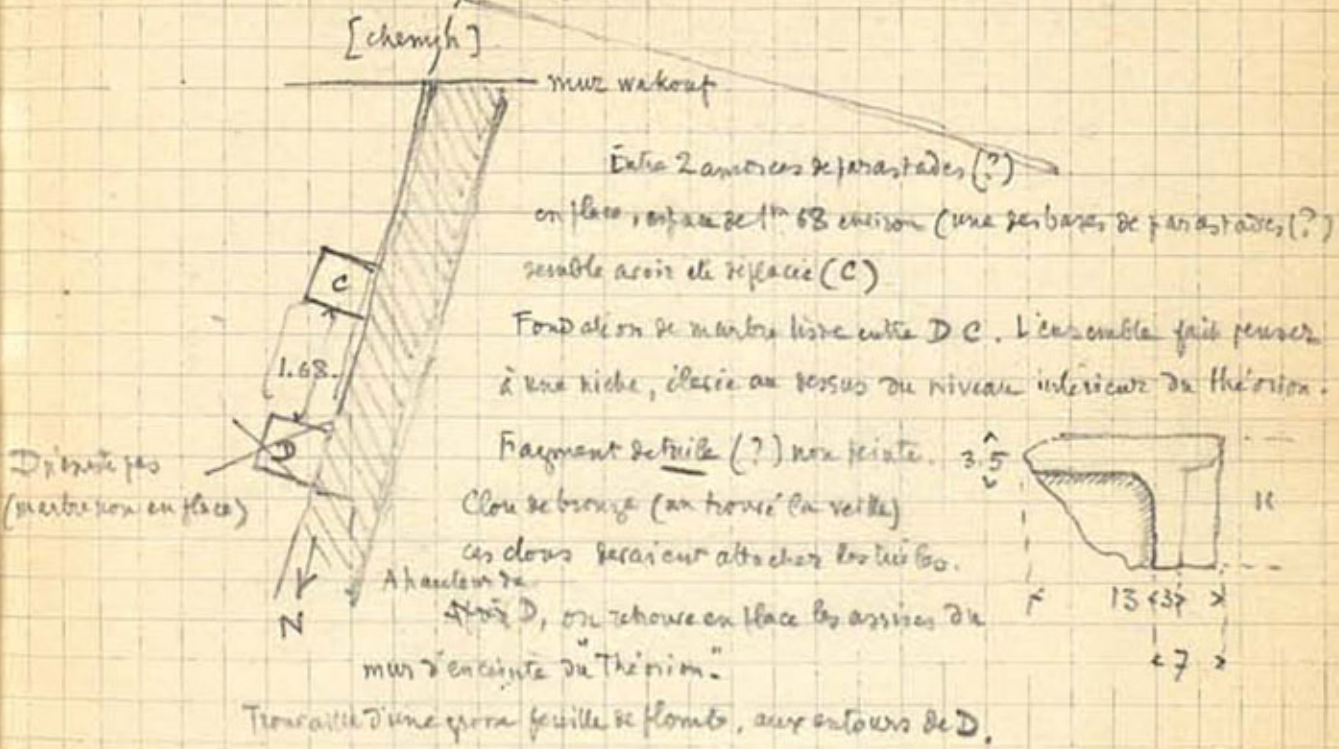 [chemin]
mur wakouf
Entre 2 amorces de parastades (?)
en place, espace de 1m 68 environ (une des bases de parastades (?)
semble avoir été déplacée (C)
C
Fondation de marbre lisse entre D C. L'ensemble fait penser
1.68.
à une niche, élevée au dessus du niveau intérieur du théorion.
D
Fragment de tuile (?) non peinte.
3.5
D n'existe pas
(marbre non en place)
Clou de bronze (un trouvé la veille)
ces clous devaient attacher les tuiles.
13 3
7
N
A hauteur de
D, on retrouve en place les assises du
mur d'enceinte du "Théorion".
Trouvaille d'une grosse feuille de plomb, aux entours de D.